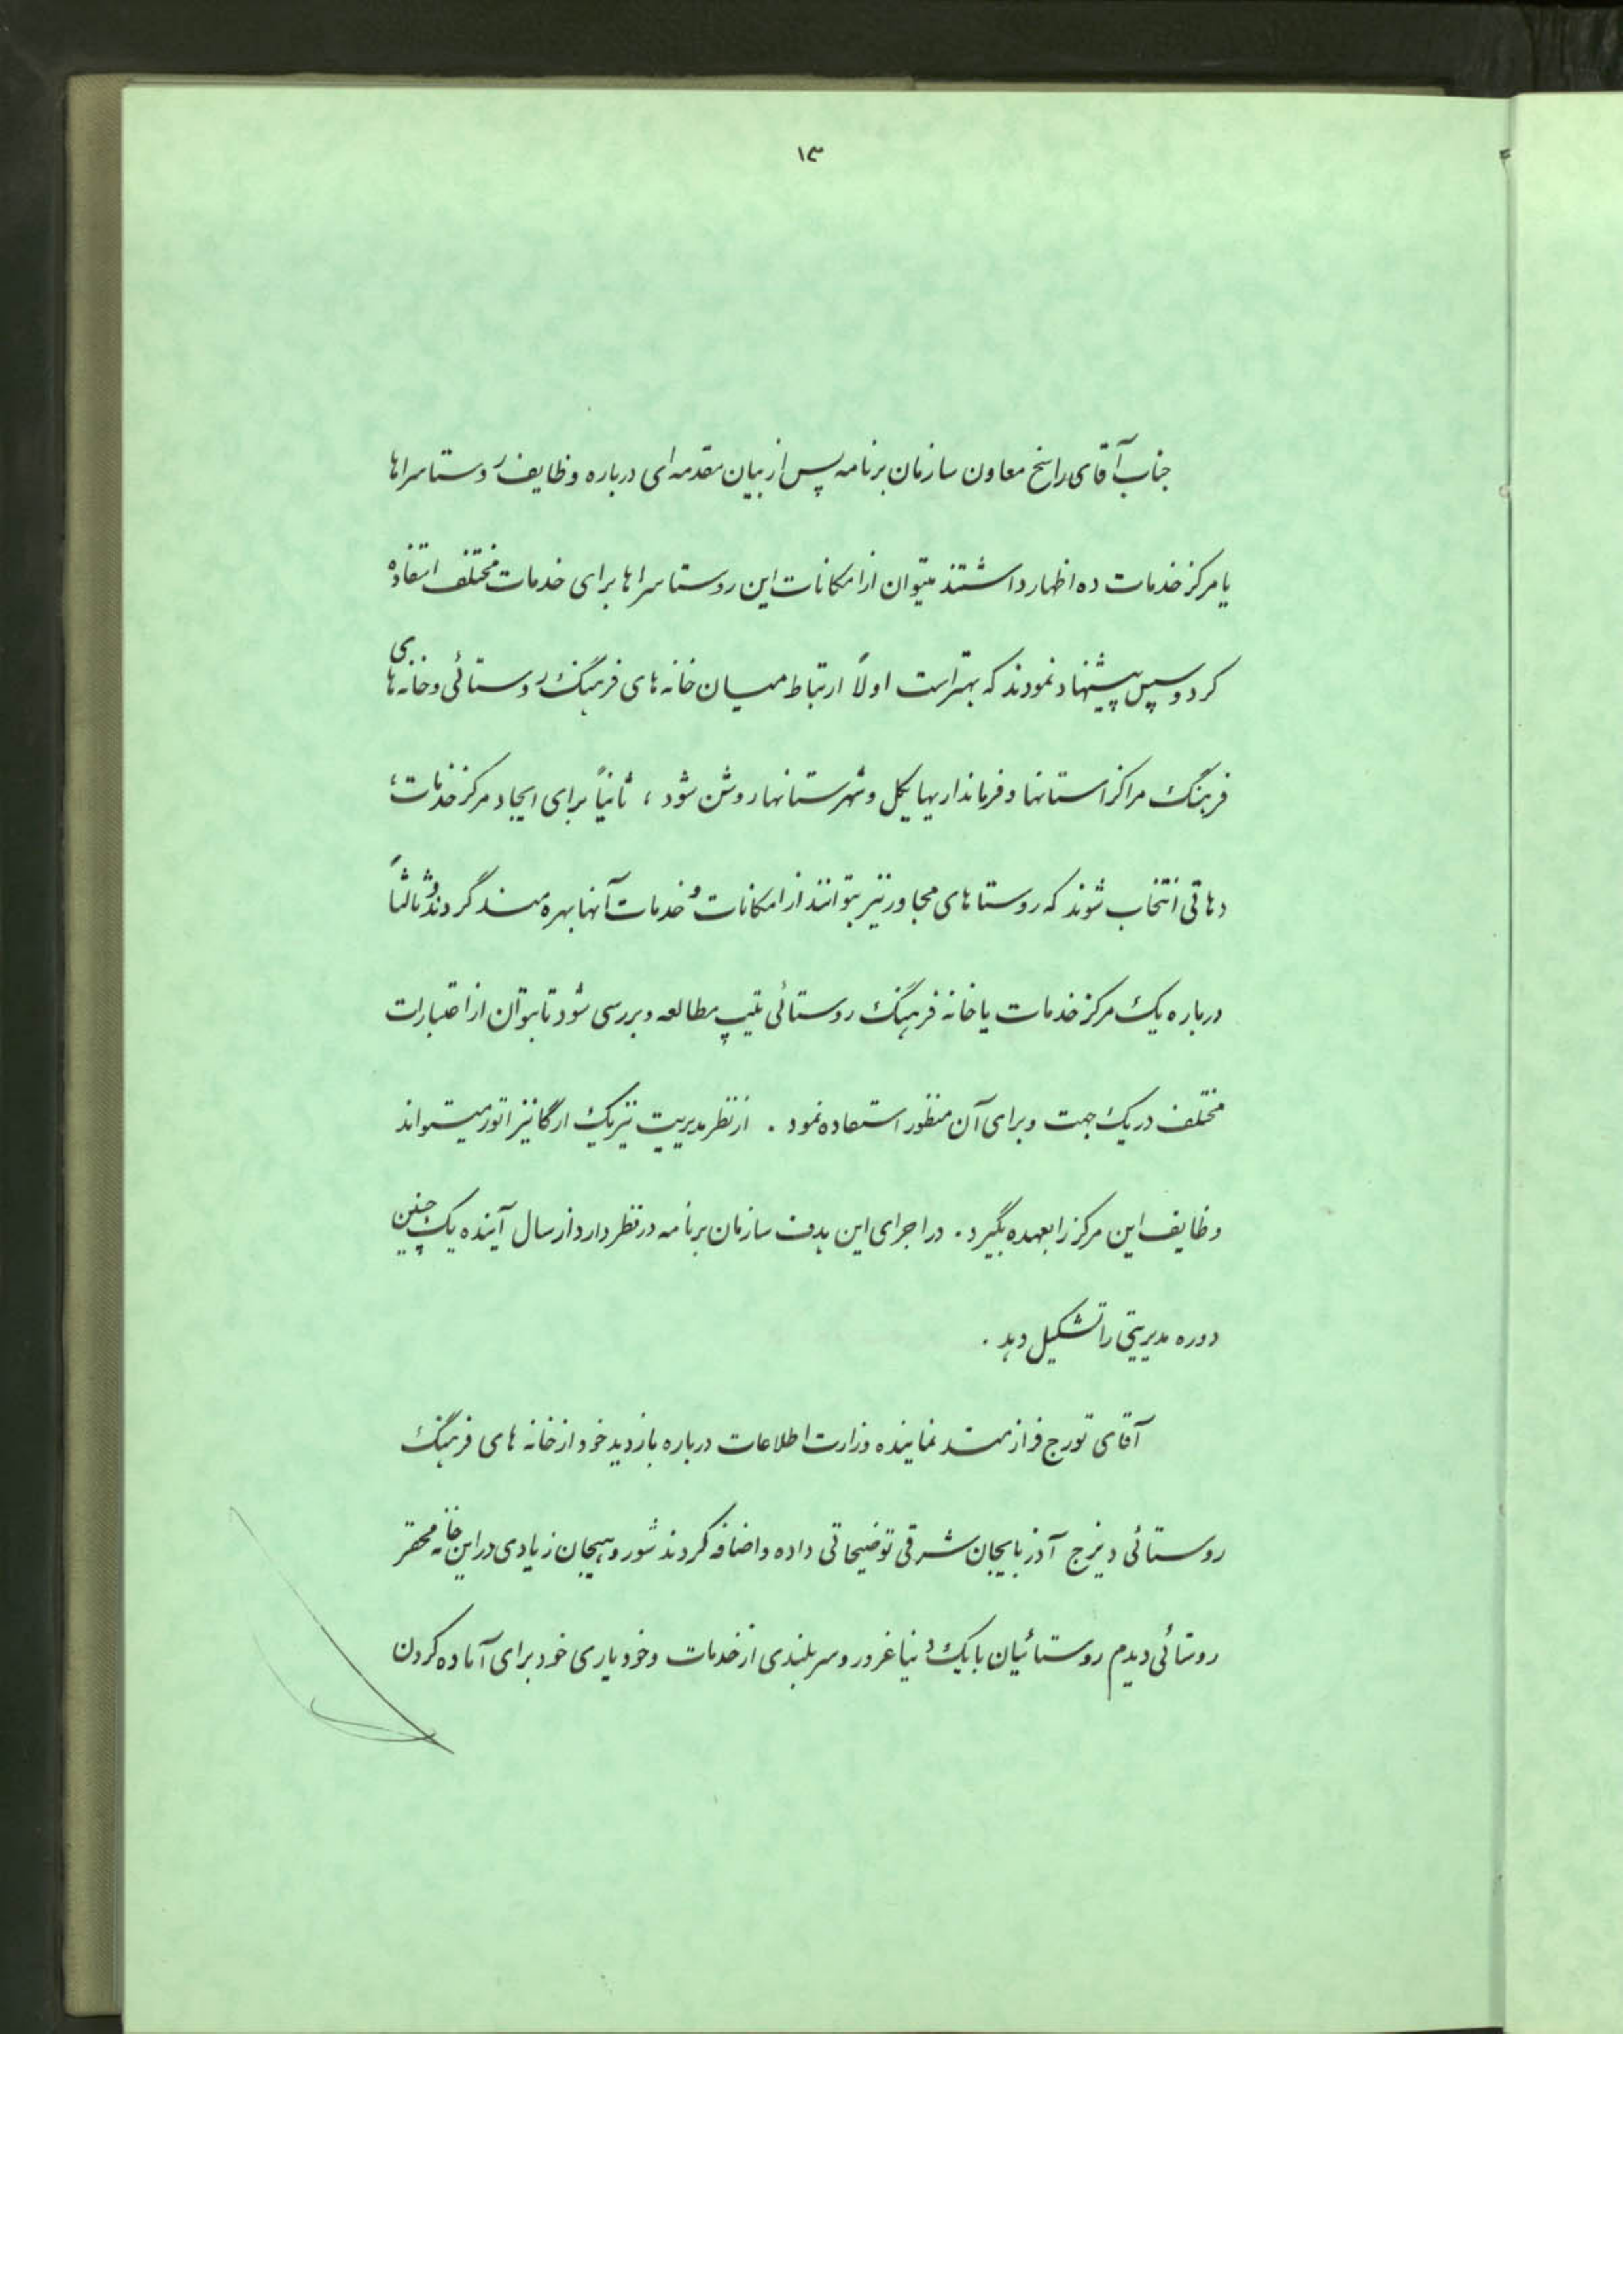 ۱۳
جناب آقای راسخ معاون سازمان برنامه پس از بیان مقدمه‌ای درباره وظایف روستاسراها
یا مرکز خدمات ده اظهار داشتند میتوان از امکانات این روستاسراها برای خدمات مختلف استفاده
کرد و سپس پیشنهاد نمودند که بهتر است اولاً ارتباط میان خانه‌های فرهنگ روستائی و خانه‌های
فرهنگ مراکز استانها و فرمانداریهای کل و شهرستانها روشن شود ، ثانیاً برای ایجاد مرکز خدمات ،
دهاتی انتخاب شوند که روستاهای مجاور نیز بتوانند از امکانات و خدمات آنها بهره‌مند گردند و ثالثاً
درباره یک مرکز خدمات یا خانه فرهنگ روستائی تیپ مطالعه و بررسی شود تا بتوان از اعتبارات
مختلف در یک جهت و برای آن منظور استفاده نمود . از نظر مدیریت نیز یک ارگانیزاتور میتواند
وظایف این مرکز را بعهده بگیرد . در اجرای این هدف سازمان برنامه در نظر دارد از سال آینده یک چنین
دوره مدیریتی را تشکیل دهد .
آقای تورج فرازمند نماینده وزارت اطلاعات درباره بازدید خود از خانه های فرهنگ
روستائی دیزج آذربایجان شرقی توضیحاتی داده و اضافه کردند شور و هیجان زیادی در این خانه محقر
روستائی دیدم روستائیان با یک دنیا غرور و سربلندی از خدمات و خودیاری خود برای آماده کردن